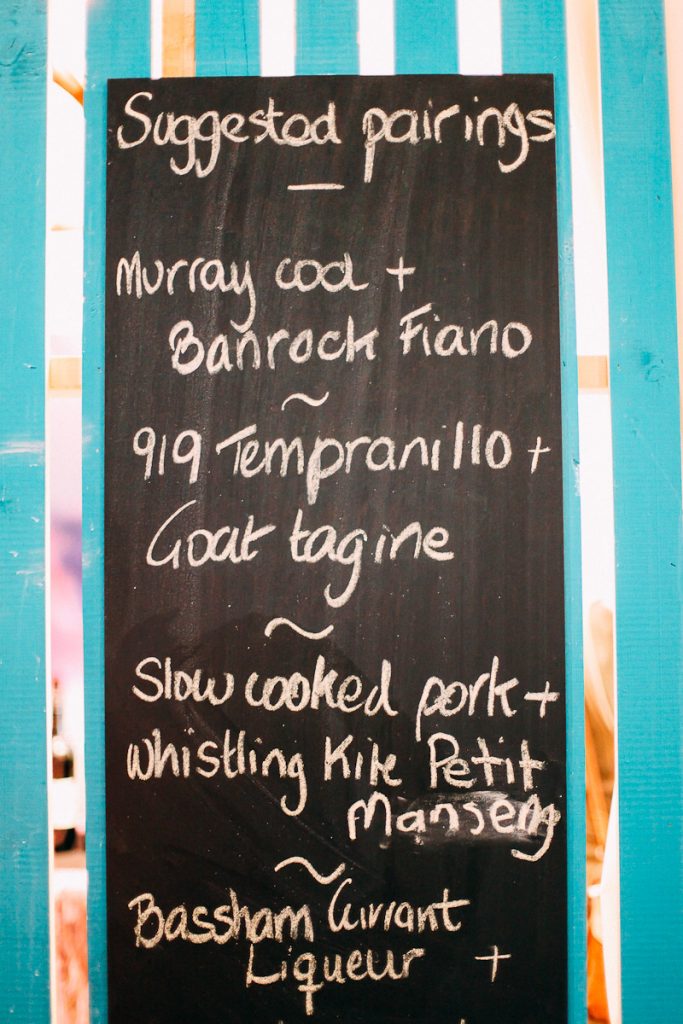 Suggested pairings
Murray cod +
Banrock Fiano
~
919 Tempranillo +
Goat tagine
~
Slow cooked pork +
Whistling Kite Petit
Manseng
~
Bassham Currant
Liqueur +